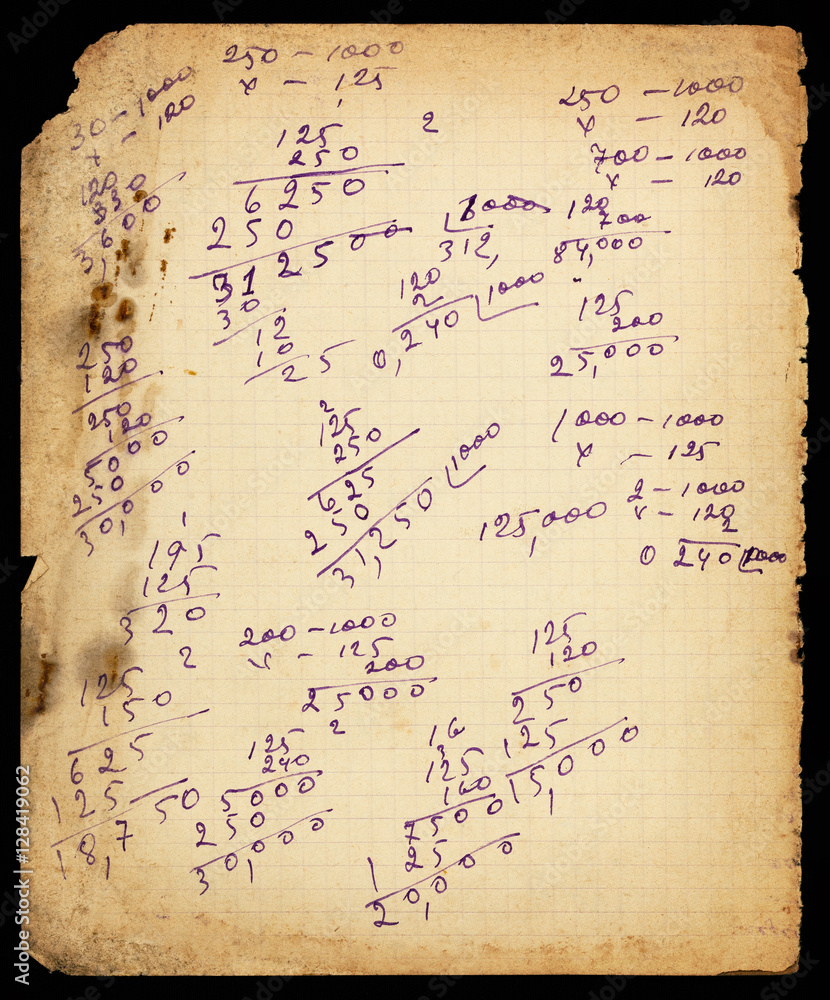 250 – 1000
x – 125
125
250
6250
250
312500
30
12
10
25
30 – 1000
x – 120
120
330
3600
250
120
250
120
5000
250
30,000
2
1000
312,
120
2
0,240 1000
250 – 1000
x – 120
700 – 1000
x – 120
120
700
84,000
125
200
25,000
2
125
250
625
250
31,250 1000
1000 – 1000
x – 125
125,000
2 – 1000
x – 120
2
0 240 1000
1
195
125
320
2
125
150
625
125 50
18,7
200 – 1000
x – 125
200
25000
2
125
240
5000
250
30,000
16
3
125
160
7500
125
20,000
125
120
250
125
15,000
Adobe Stock | #128419062